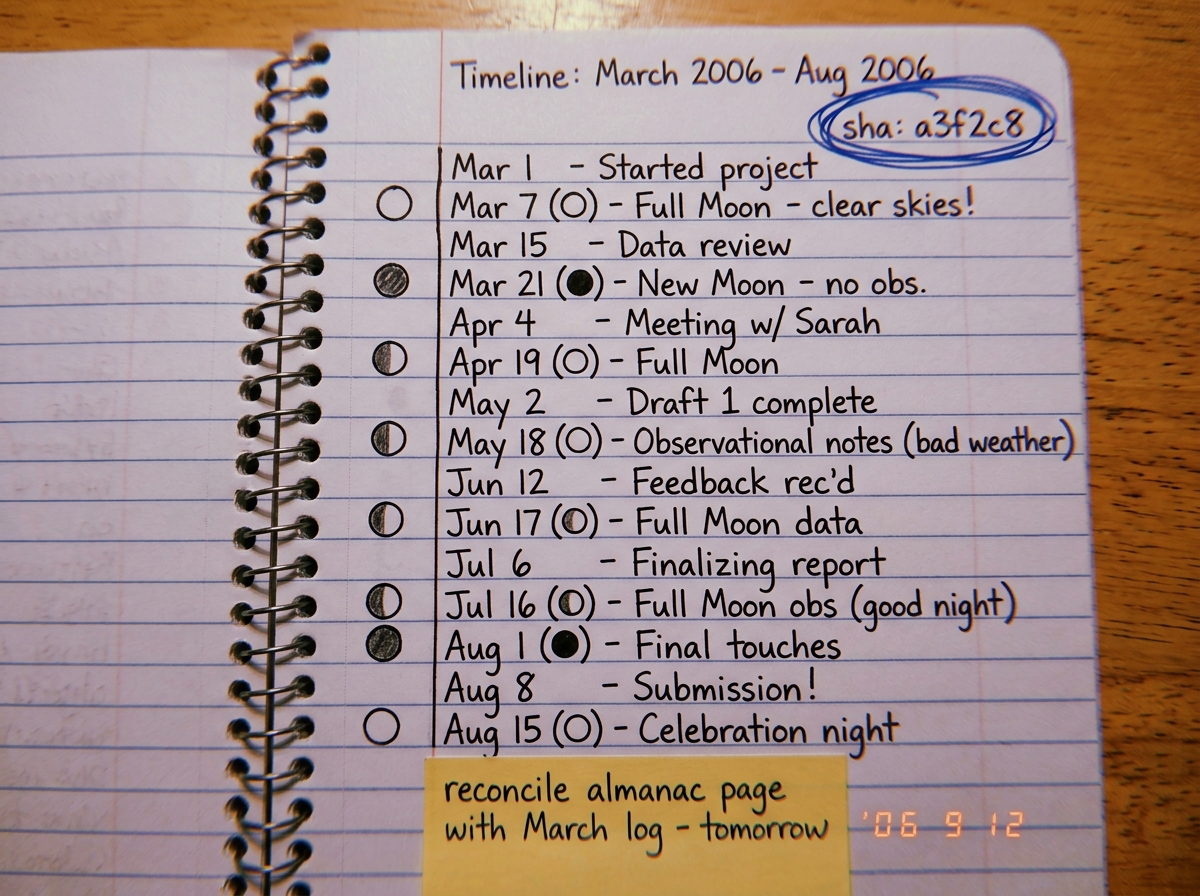 Timeline: March 2006 - Aug 2006
sha: a3f2c8
Mar 1 - Started project
Mar 7 (○) - Full Moon - clear skies!
Mar 15 - Data review
Mar 21 (●) - New Moon - no obs.
Apr 4 - Meeting w/ Sarah
Apr 19 (○) - Full Moon
May 2 - Draft 1 complete
May 18 (○) - Observational notes (bad weather)
Jun 12 - Feedback rec'd
Jun 17 (◐) - Full Moon data
Jul 6 - Finalizing report
Jul 16 (◐) - Full Moon obs (good night)
Aug 1 (●) - Final touches
Aug 8 - Submission!
Aug 15 (○) - Celebration night
reconcile almanac page
with March log - tomorrow
'06 9 12